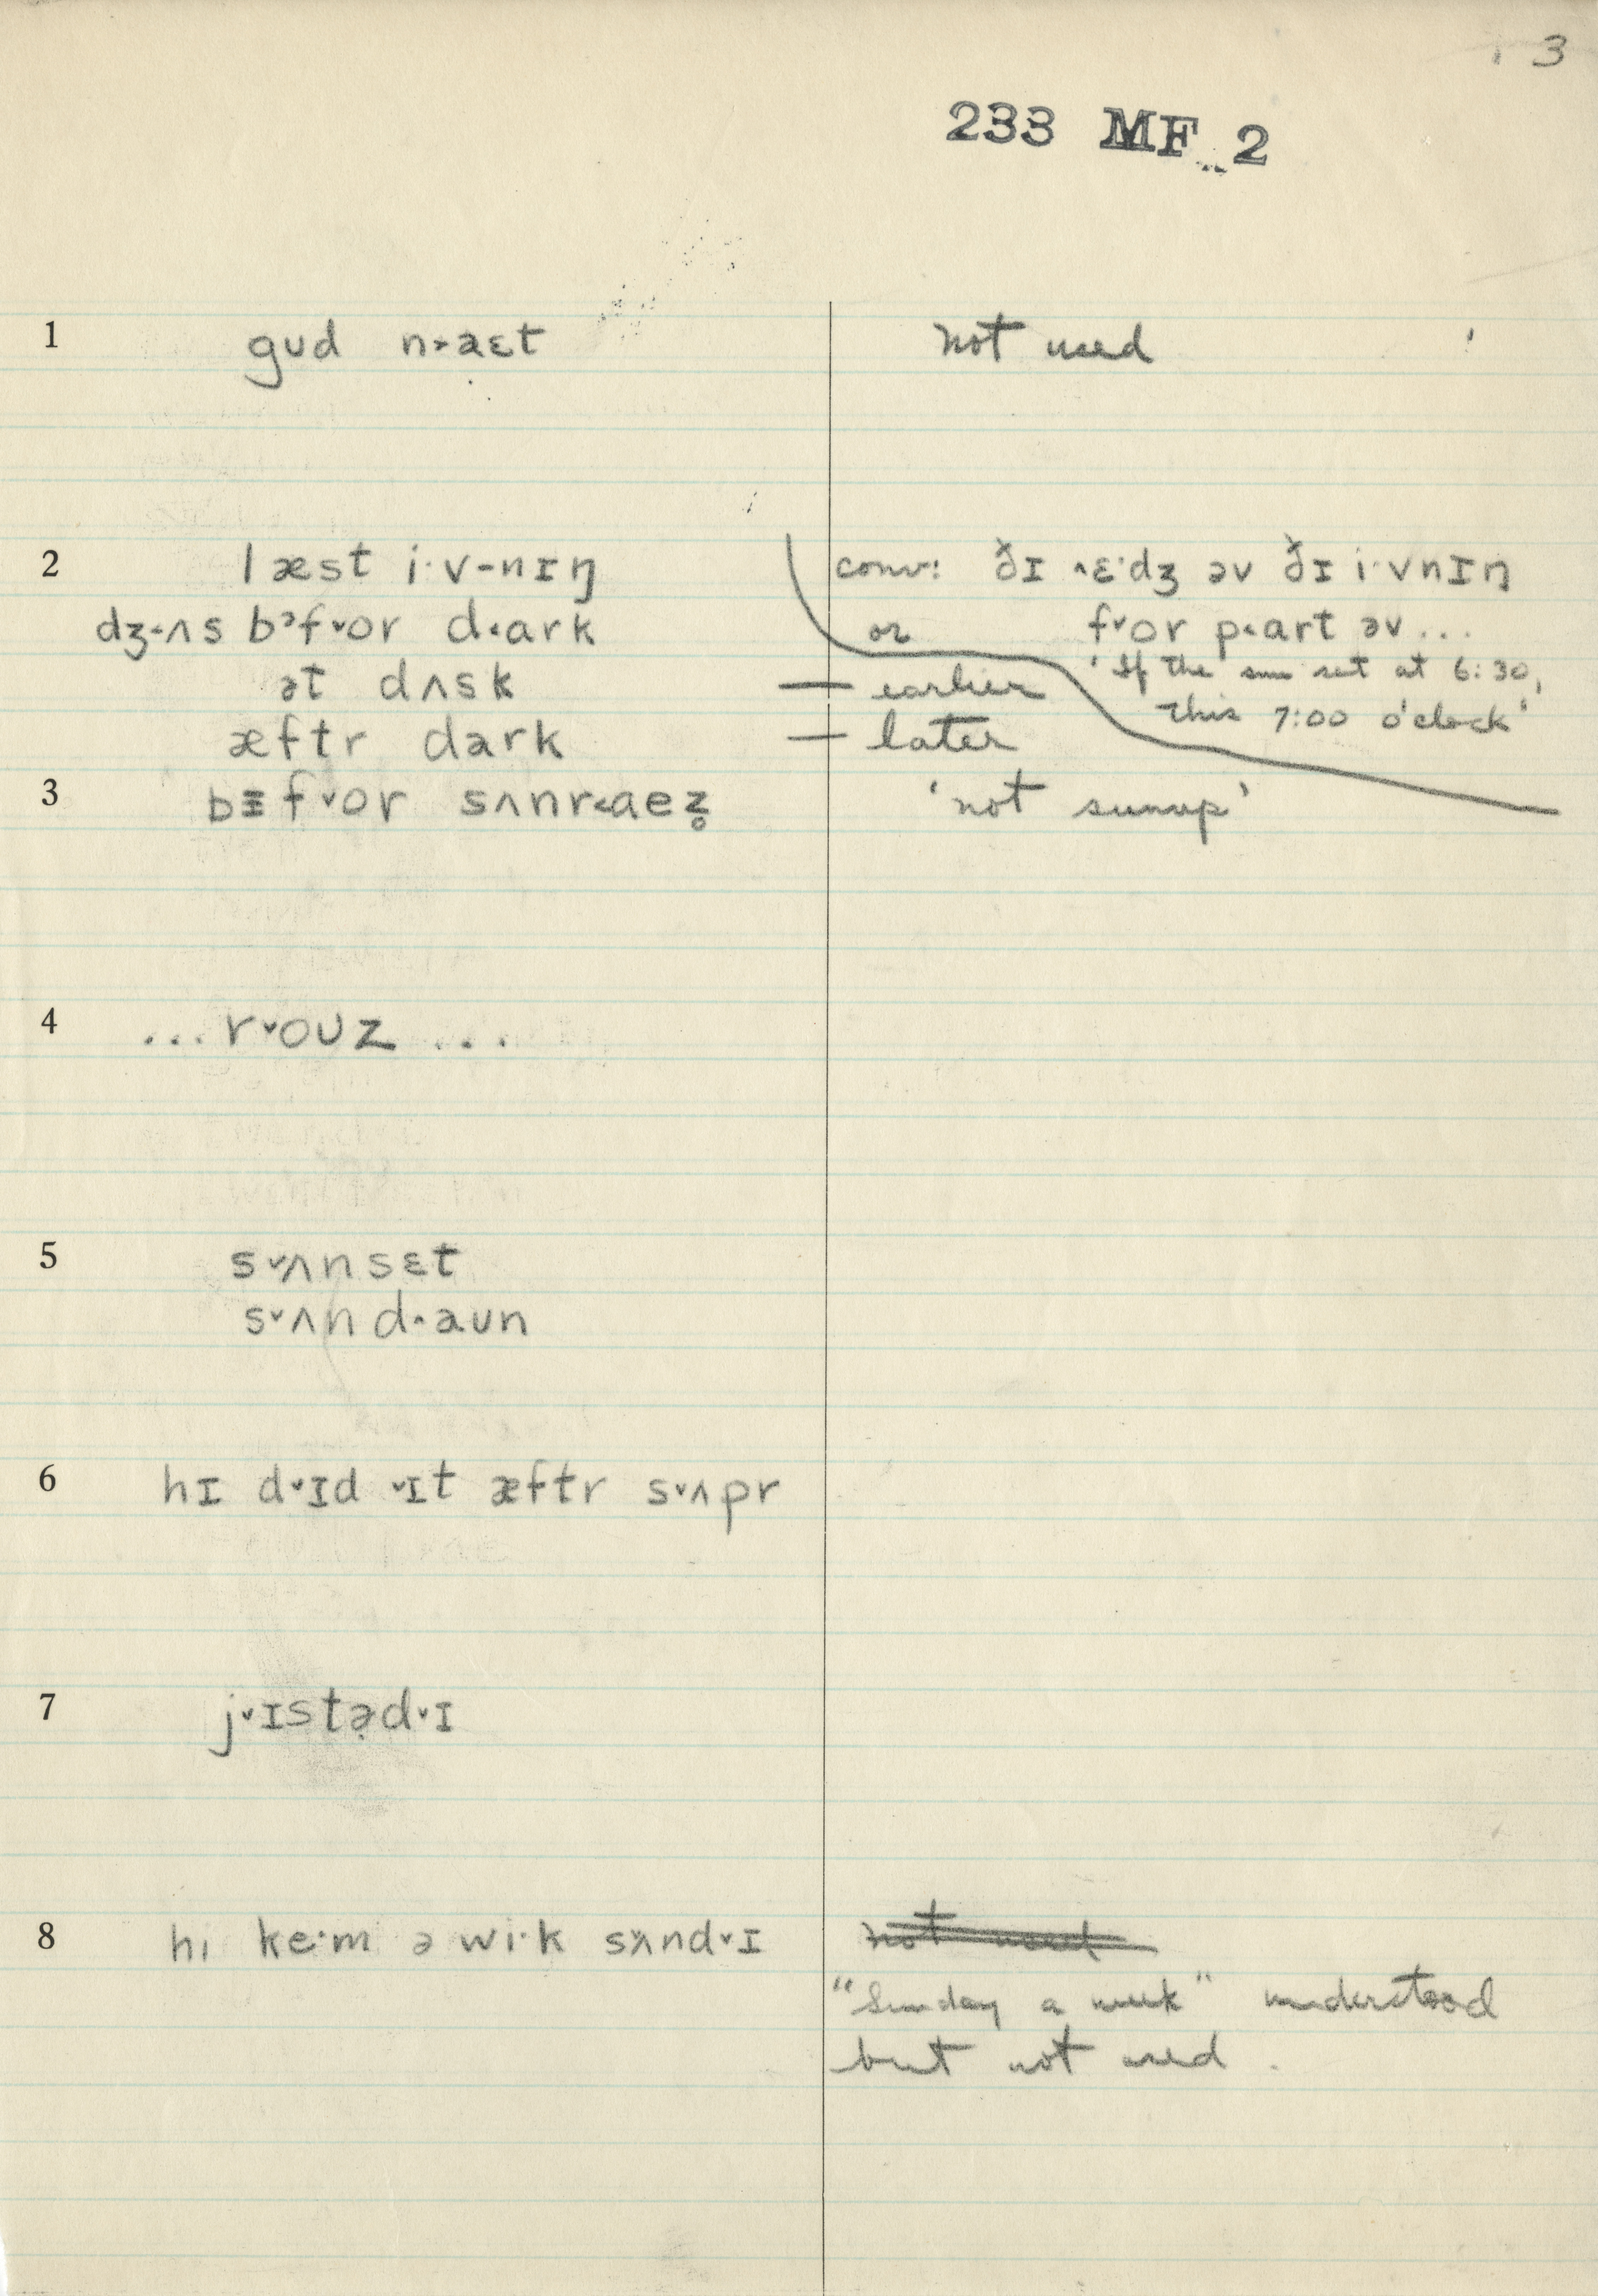 3
233 MF 2
1 gʊd n˃aɛt not used
2 læst i·v-nɪŋ conv: ðɪ ˄ɛ·dʒ əv ðɪ i·vnɪŋ
dʒ˂ʌs bᵊf˅or d˂ark or f˅or p˂art əv...
ət dʌsk — earlier 'If the sun set at 6:30,
this 7:00 o'clock'
æftr dark — later
3 bɪf˅or sʌnr˂aez̥ 'not sunup'
4 ...r˅oʊz...
5 s˅ʌnsɛt
s˅ʌnd˄aʊn
6 hɪ d˅ɪd ˅ɪt æftr s˅ʌpr
7 j˅ɪstə̣d˅ɪ
8 hi ke·m ə wi·k sʌ̌nd˅ɪ not used
"Sunday a week" understood
but not used.